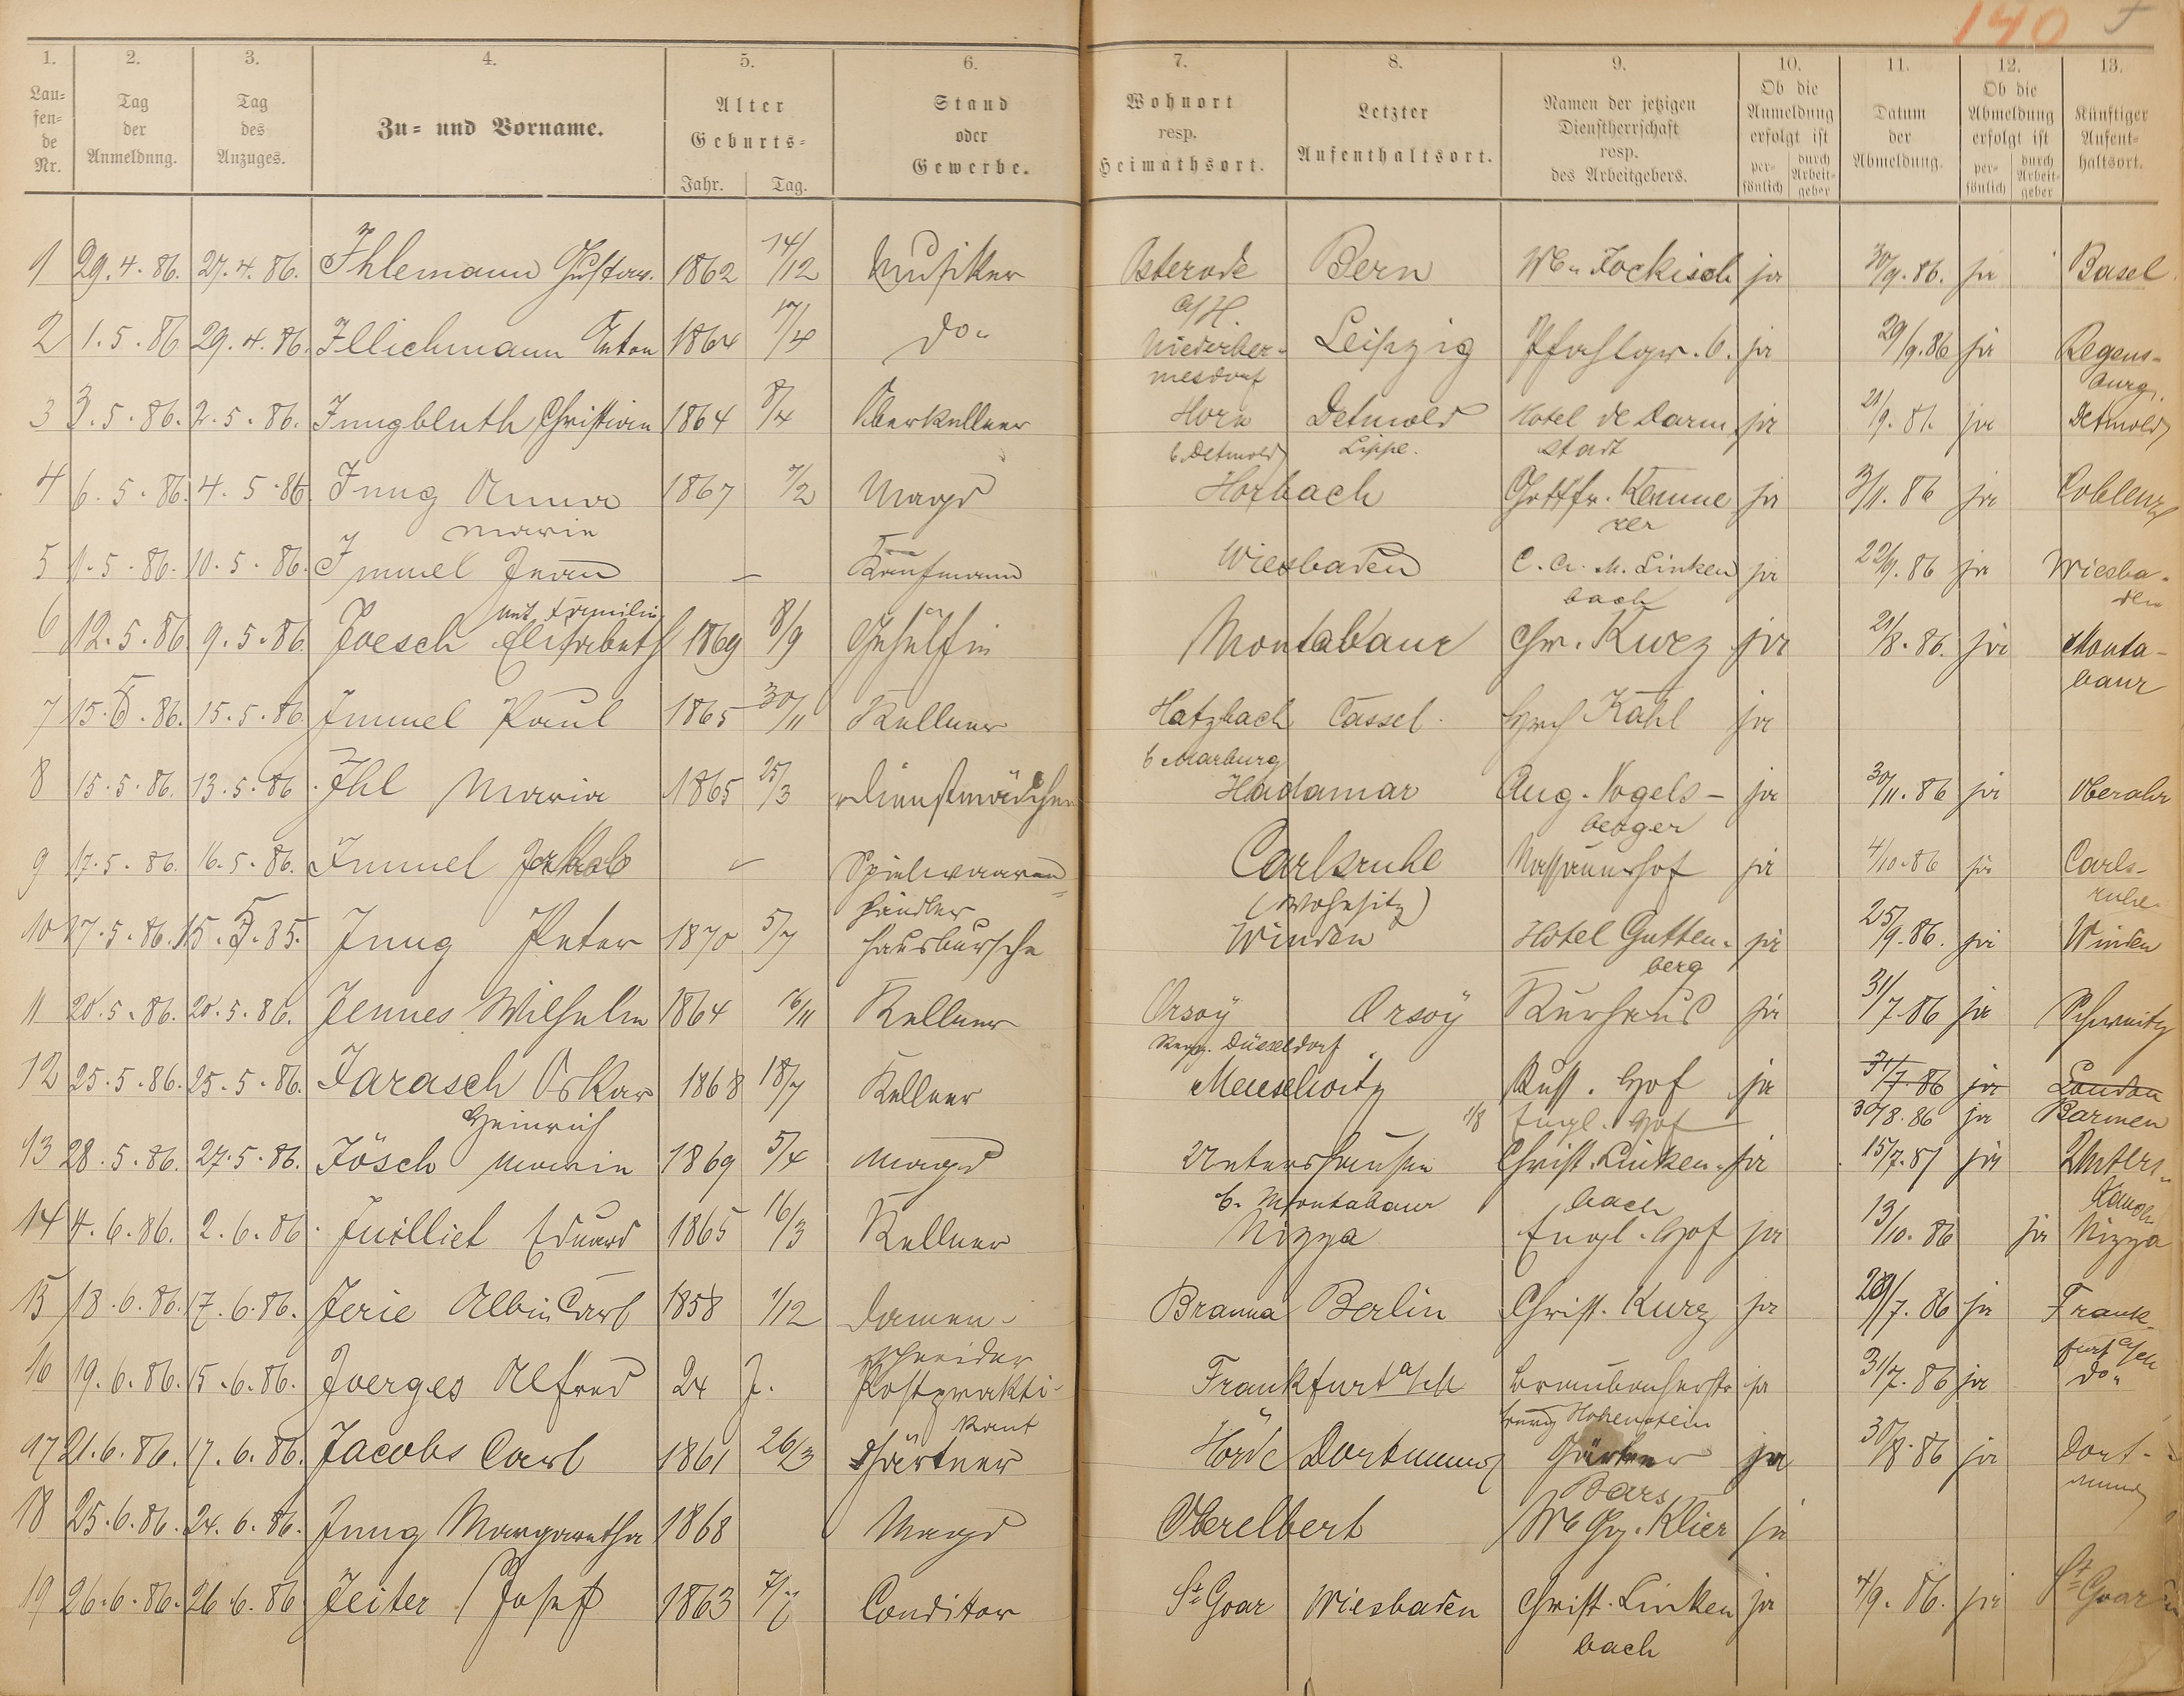 140
1. 2. 3. 4. 5. 6. 7. 8. 9. 10. 11. 12. 13.
Lau=fen=de Nr. Tag der Anmeldung. Tag des Anzuges. Zu= und Vorname. Alter Geburts= Jahr. Tag. Stand oder Gewerbe. Wohnort resp. Heimathsort. Letzter Aufenthaltsort. Namen der jetzigen Dienstherrschaft resp. des Arbeitgebers. Ob die Anmeldung erfolgt ist per=sönlich durch Arbeit=geber Datum der Abmeldung. Ob die Abmeldung erfolgt ist per=sönlich durch Arbeit=geber Künftiger Aufent=haltsort.
1 29.4.86. 27.4.86. Ihlemann Gustav. 1862 14/12 Musiker Osterode Bern We. Jockisch ja 30/9.86. ja Basel
a/H.
2 1.5.86 29.4.86. Illichmann Anton 1864 17/4 do. Niederher- Leipzig Pfahlgr. 6. ja 29/9.86 ja Regens-
mesdorf burg
3 3.5.86. 2.5.86. Jungbluth Christian 1864 8/4 Oberkellner Horn Detmold Hotel de Darm ja 21/9.81. ja Detmold
b. Detmold Lippe. stadt
4 6.5.86. 4.5.86 Jung Anna 1867 7/2 Magd Horbach Gottfr. Kemme ja 3/11.86 ja Coblenz
Maria rer
5 11.5.86. 10.5.86. Immel — Kaufmann Wiesbaden C. A. M. Linken ja 22/9.86 ja Wiesba-
mit Familie bach den
6 12.5.86 9.5.86 Joesch Elisabeth 1869 8/9 Gehülfin Montabaur Chr. Kurz ja 21/8.86. ja Monta-
baur
7 15.5.86. 15.5.86. Immel Paul 1865 30/11 Kellner Hatzbach Cassel. Hrch Kahl ja
b Marburg
8 15.5.86. 13.5.86. Ihl Maria 1865 25/3 Dienstmädchen Hadamar Aug. Vogels- ja 30/11.86 ja Oberahr
berger
9 17.5.86. 16.5.86. Immel Jakob — Spielwaaren= Carlsruhe Nassauerhof ja 4/10.86 ja Carls-
händler (Wohnsitz) ruhe.
10 17.5.86. 15.5.85. Jung Peter 1870 5/7 Hausbursche Winden Hotel Gutten- ja 25/9.86. ja Winden
berg
11 20.5.86. 20.5.86. Jennes Wilhelm 1864 16/11 Kellner Orsoy Orsoy Kurhaus ja 31/7.86 ja Schweitz
Regg. Düsseldorf
12 25.5.86. 25.5.86. Jarasch Oskar 1868 18/7 Kellner Meuselwitz Russ. Hof ja 31/7.86 ja London
Heinrich 1/8 Engl. Hof 30/8.86 ja Barmen
13 28.5.86. 27.5.86. Jösch Maria 1869 5/4 Magd Untershausen Christ. Linken- ja 15/7.87 ja Unters-
b. Montabaur bach hausen
14 4.6.86. 2.6.86. Juilliet Eduard 1865 16/3 Kellner Nizza Engl. Hof ja 13/10.86 ja Nizza
15 18.6.86. 17.6.86. Jerie Albin Carl 1858 1/12 Damen- Branna Berlin Christ. Kurz ja 29/7.86 ja Frank-
schneider furt a/M
16 19.6.86. 15.6.86. Joerges Alfred 24 J. Postprakti- Frankfurt a/M Braubacherstr ja 31/7.86 ja do.
kant burg Hohenstein
17 21.6.86. 17.6.86. Jacobs Carl 1861 26/3 Gärtner Hörde Dortmund Gärtner ja 30/8.86 ja Dort-
Bars mund
18 25.6.86. 24.6.86. Jung Margaretha 1868 Magd Oberelbert We Gg. Klier ja
19 26.6.86. 26.6.86 Jeiter Josef 1863 Conditor St Goar Wiesbaden Christ. Linken ja 4/9.86. ja St Goar
bach